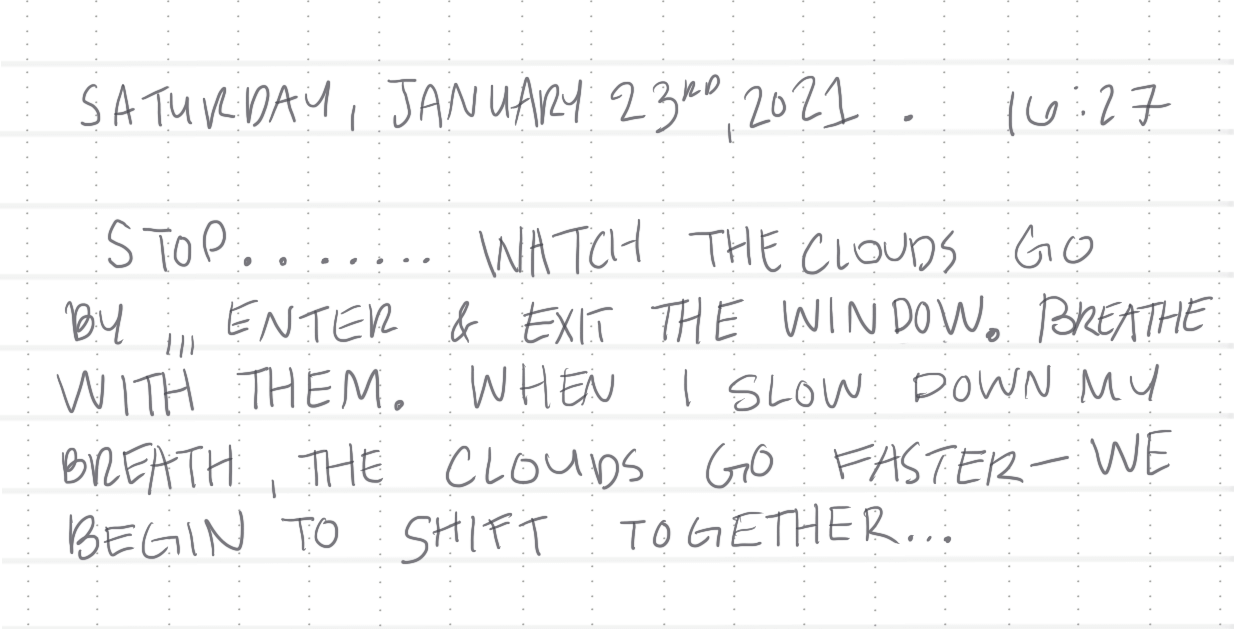 SATURDAY, JANUARY 23RD, 2021. 16:27
STOP........ WATCH THE CLOUDS GO
BY ,,, ENTER & EXIT THE WINDOW. BREATHE
WITH THEM. WHEN I SLOW DOWN MY
BREATH, THE CLOUDS GO FASTER — WE
BEGIN TO SHIFT TOGETHER...